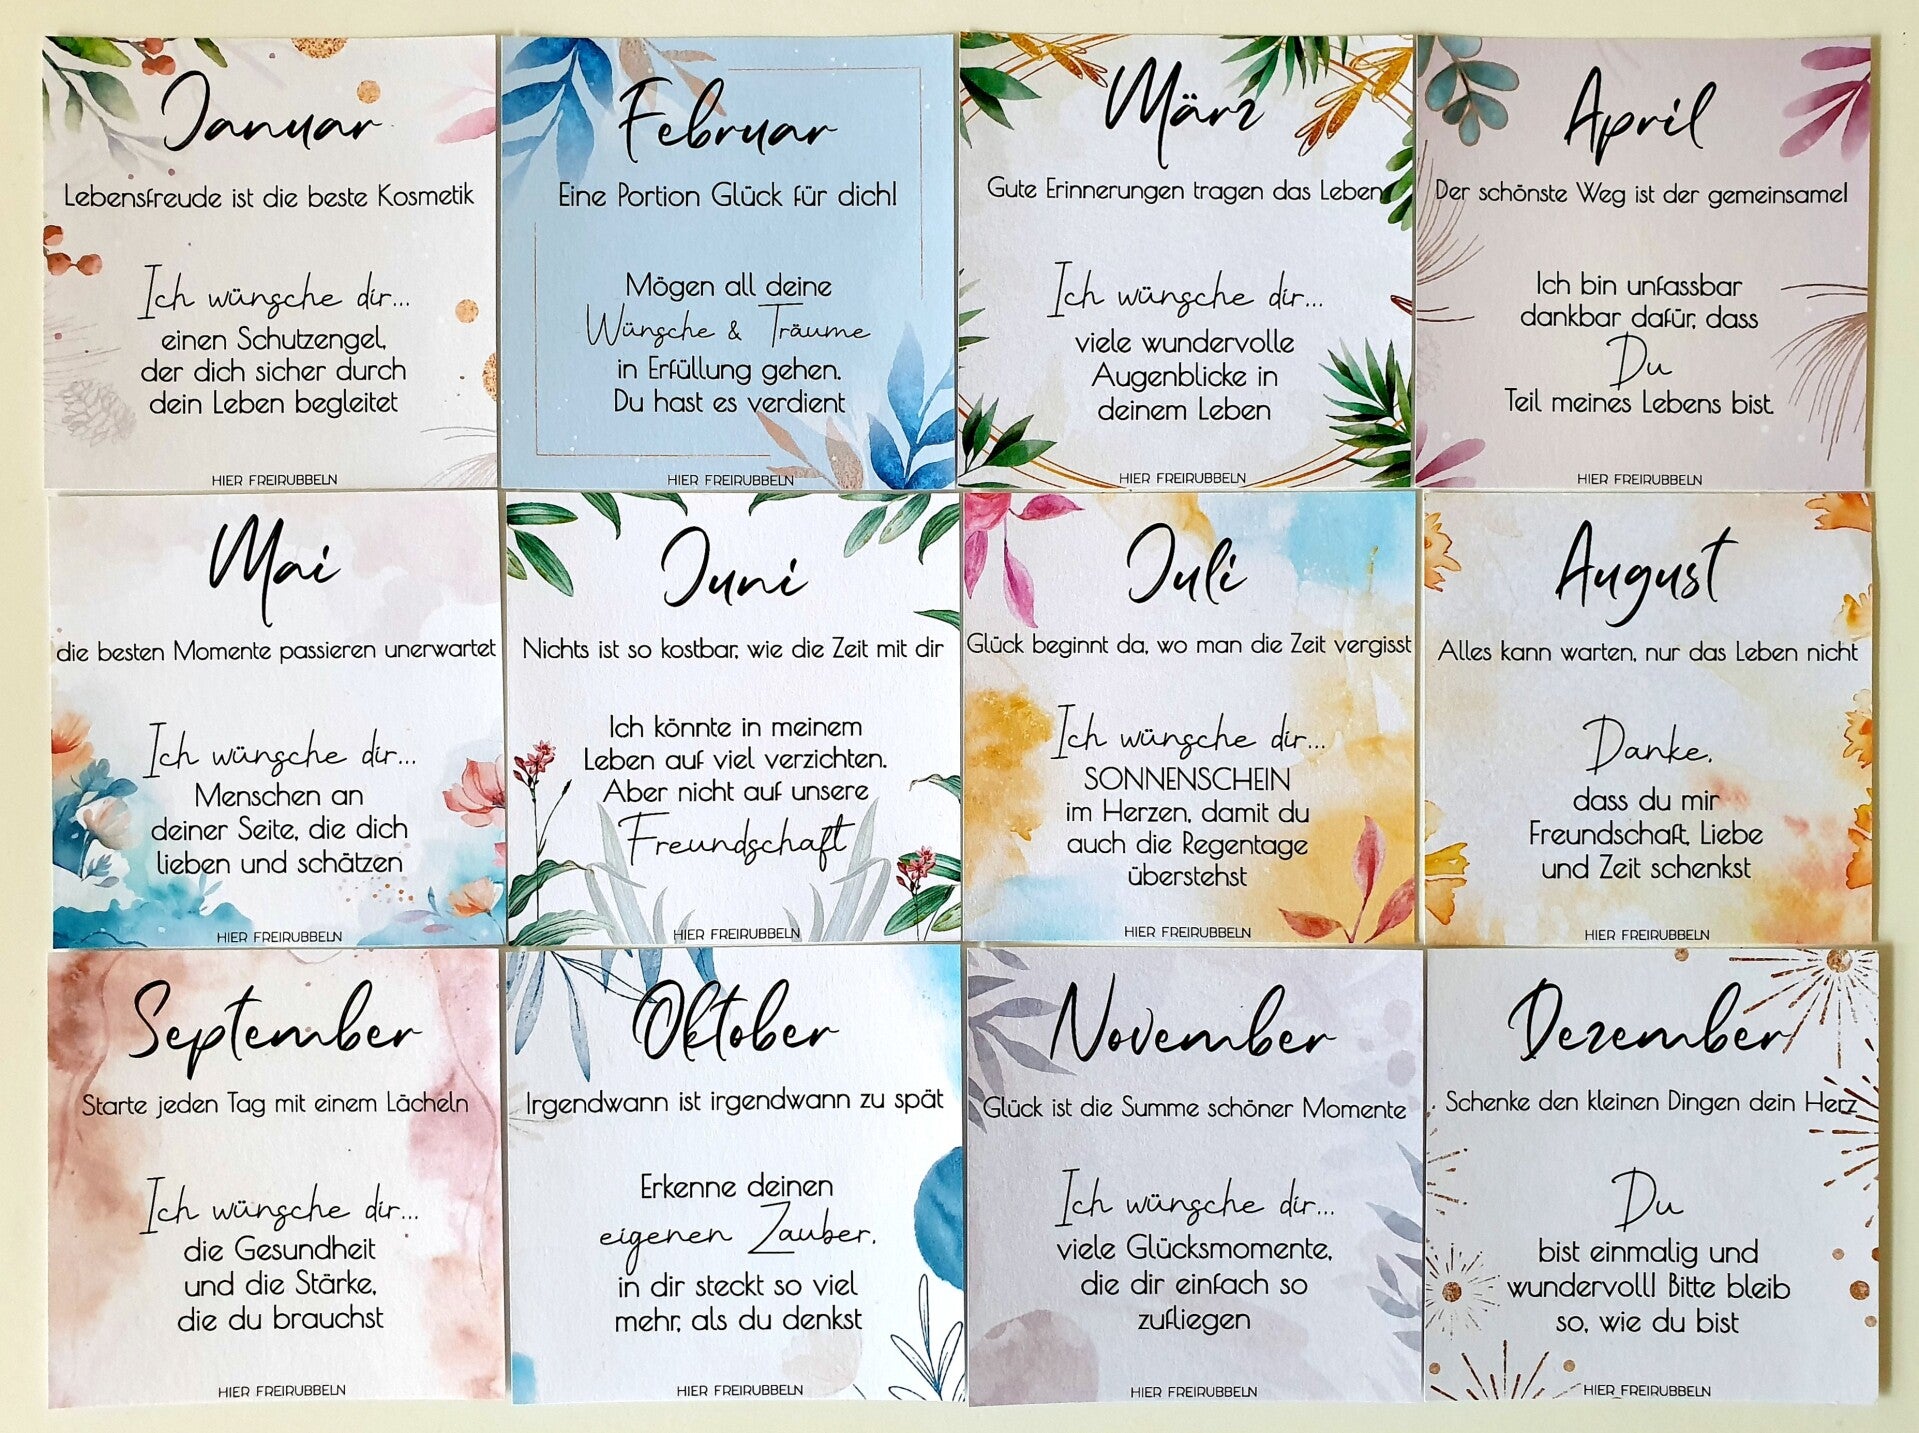 Januar
Lebensfreude ist die beste Kosmetik
Ich wünsche dir...
einen Schutzengel,
der dich sicher durch
dein Leben begleitet
HIER FREIRUBBELN
Februar
Eine Portion Glück für dich!
Mögen all deine
Wünsche & Träume
in Erfüllung gehen.
Du hast es verdient
HIER FREIRUBBELN
März
Gute Erinnerungen tragen das Leben
Ich wünsche dir...
viele wundervolle
Augenblicke in
deinem Leben
HIER FREIRUBBELN
April
Der schönste Weg ist der gemeinsame!
Ich bin unfassbar
dankbar dafür, dass
Du
Teil meines Lebens bist.
HIER FREIRUBBELN
Mai
die besten Momente passieren unerwartet
Ich wünsche dir...
Menschen an
deiner Seite, die dich
lieben und schätzen
HIER FREIRUBBELN
Juni
Nichts ist so kostbar, wie die Zeit mit dir
Ich könnte in meinem
Leben auf viel verzichten.
Aber nicht auf unsere
Freundschaft
HIER FREIRUBBELN
Juli
Glück beginnt da, wo man die Zeit vergisst
Ich wünsche dir...
SONNENSCHEIN
im Herzen, damit du
auch die Regentage
überstehst
HIER FREIRUBBELN
August
Alles kann warten, nur das Leben nicht
Danke,
dass du mir
Freundschaft, Liebe
und Zeit schenkst
HIER FREIRUBBELN
September
Starte jeden Tag mit einem Lächeln
Ich wünsche dir...
die Gesundheit
und die Stärke,
die du brauchst
HIER FREIRUBBELN
Oktober
Irgendwann ist irgendwann zu spät
Erkenne deinen
eigenen Zauber,
in dir steckt so viel
mehr, als du denkst
HIER FREIRUBBELN
November
Glück ist die Summe schöner Momente
Ich wünsche dir...
viele Glücksmomente,
die dir einfach so
zufliegen
HIER FREIRUBBELN
Dezember
Schenke den kleinen Dingen dein Herz
Du
bist einmalig und
wundervoll! Bitte bleib
so, wie du bist
HIER FREIRUBBELN